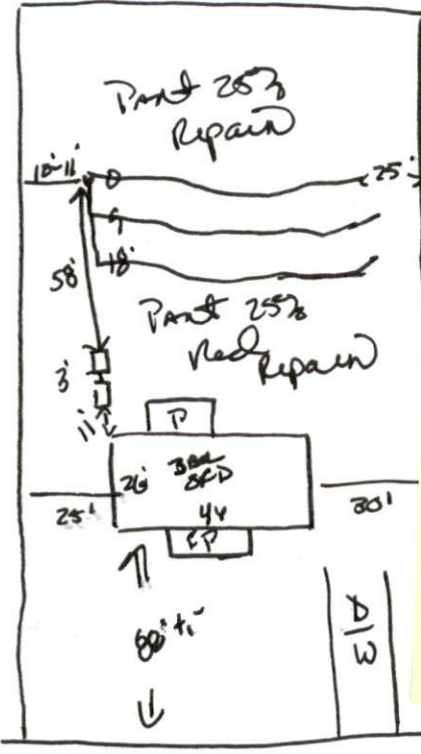 Part 25%
Repair
10-11'
0
25'
9
18'
58'
Part 25%
Red
Repair
3'
11'
P
26'
3BR
SFD
44
25'
30'
FP
80' +-
D
W